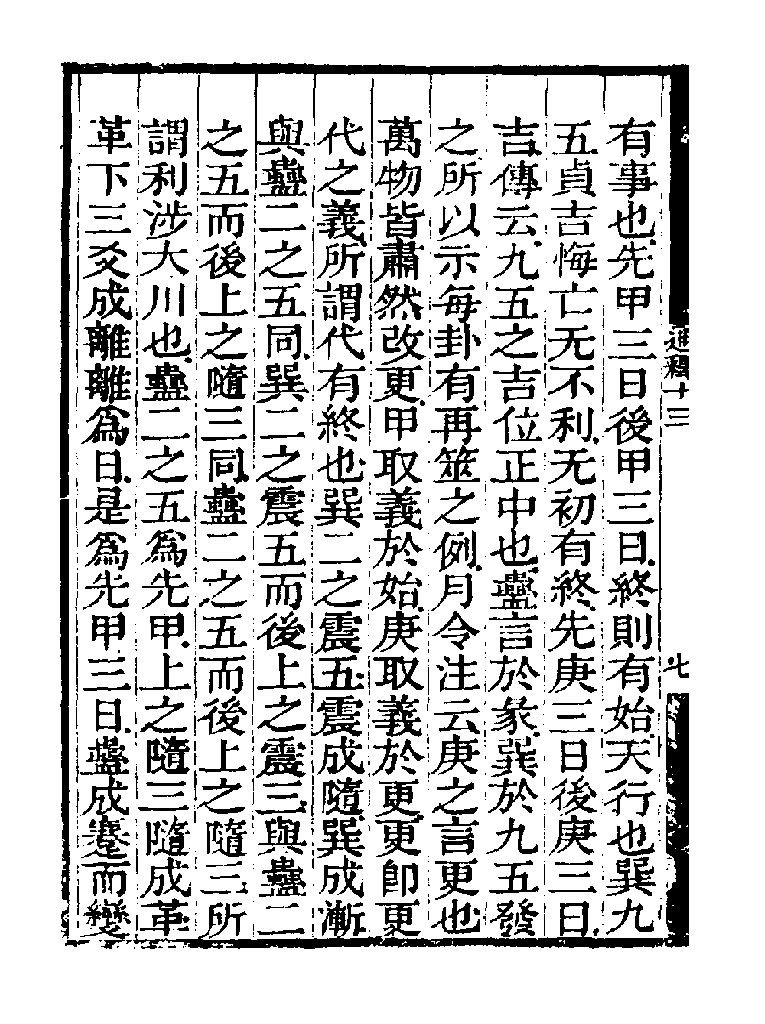 有事也先甲三日後甲三日終則有始天行也巽九
五貞吉悔亡无不利无初有終先庚三日後庚三日
吉傳云九五之吉位正中也蠱言於彖巽於九五發
之所以示每卦有再筮之例月令注云庚之言更也
萬物皆肅然改更甲取義於始庚取義於更更卽更
代之義所謂代有終也巽二之震五震成隨巽成漸
與蠱二之五同巽二之震五而後上之震三與蠱二
之五而後上之隨三同蠱二之五而後上之隨三所
謂利涉大川也蠱二之五爲先甲上之隨三隨成革
革下三爻成離離爲日是爲先甲三日蠱成蹇而變
通釋十三
七